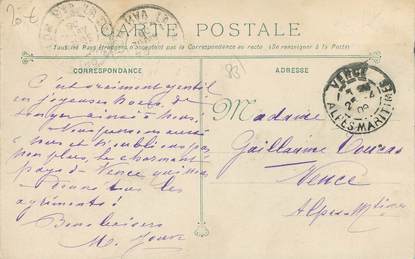 CARTE POSTALE
Tous les Pays étrangers n'acceptent pas la Correspondance au recto (Se renseigner à la Poste)
CORRESPONDANCE
ADRESSE
C'est vraiment gentil
en joyeuses noces, de
songer ainsi à nous!
Nous pensons aussi
à vous et n'oublions pas
non plus, le charmant
pays de Vence qui nous
donne tous les
agréments!
Bons baisers
M.
83
VENCE
ALPES-MARITIMES
Madame
Guillaume
Vence
Alpes-Mtimes